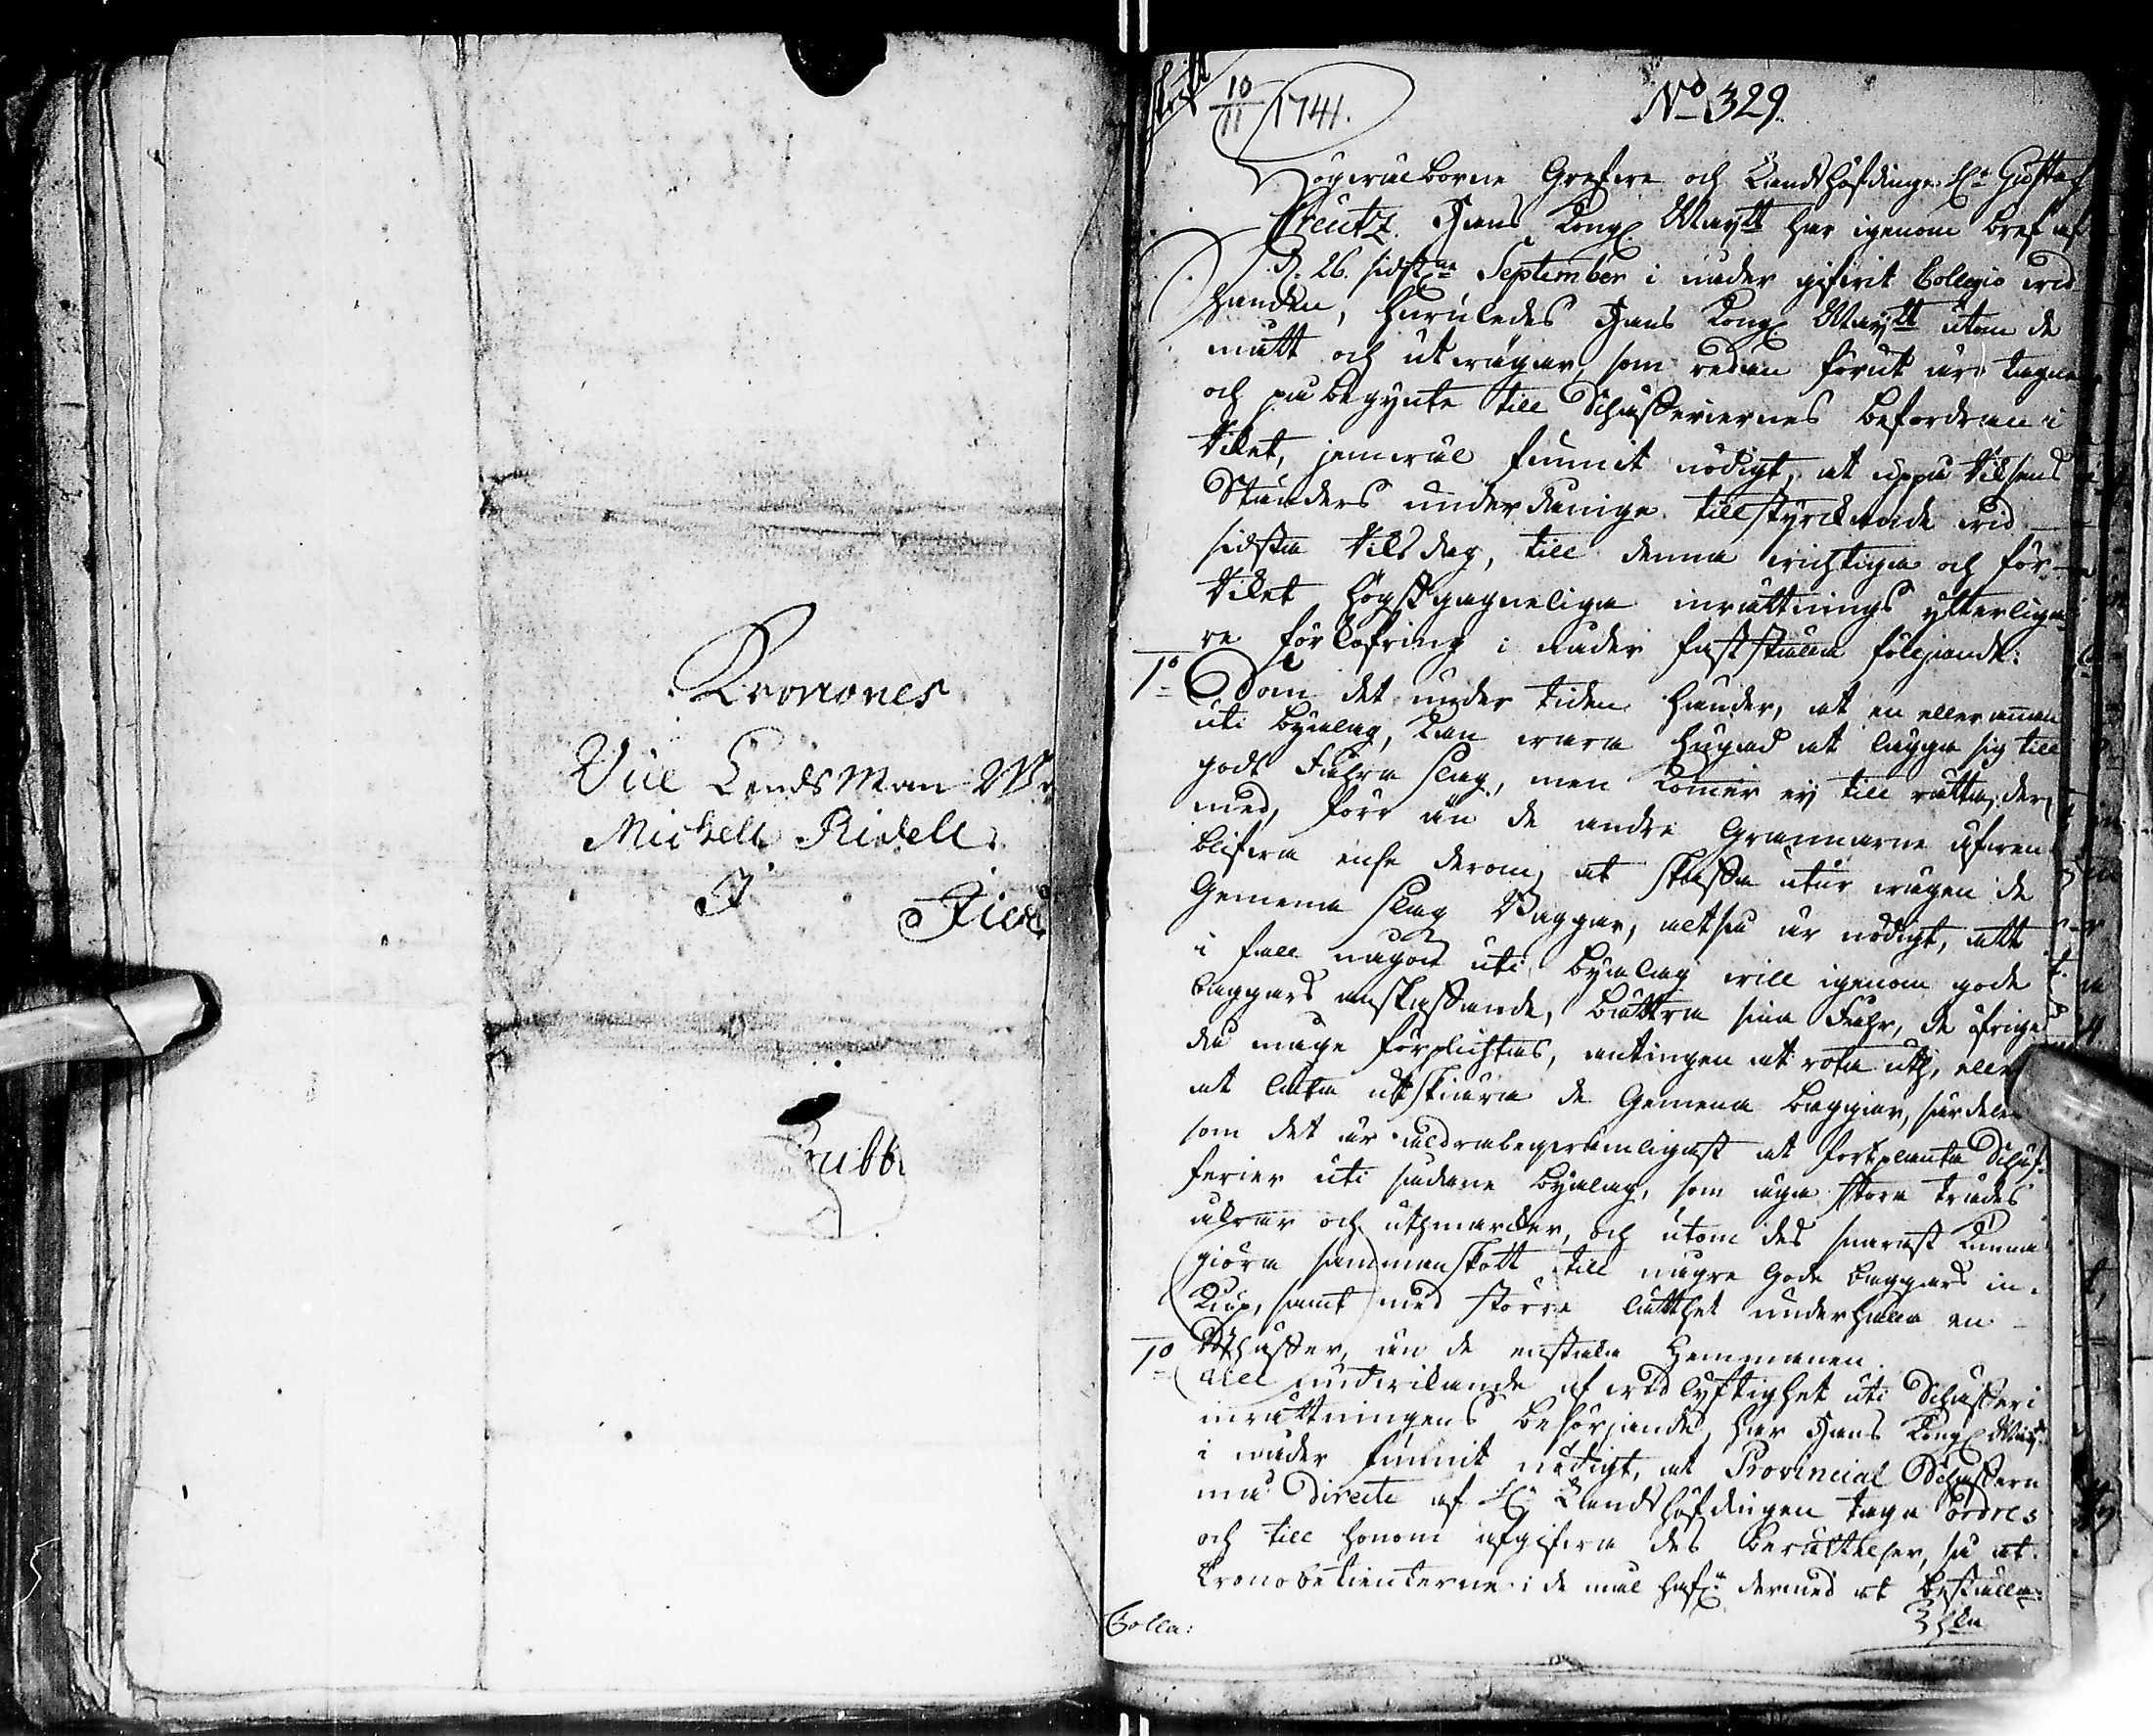 Kronones
Vice Lends Man
Michell Ridell
I
Cubb
10/11 1741.
No 329.
Högwälborne Grefwe och Landshöfdinge Hr Gustaf
Creutz. Hans Kongl Maytt har igenom bref af
d. 26. sidstne September i nåder gifwit Collegio wid
handen, huruledes Hans Kongl Maytt utom de
mått och utwägar, som redan förut äro tagne
och påbegynte till Schäfferiernes befordran i
Riket, jemwäl funnit nödigt, at uppå Riksens
Ständers underdånige tillstyrckande wid
sidsta Riksdag, till denna wichtiga och för
Riket högstgagneliga inrättnings ytterliga-
re förkofring i nåder fastställa följande:
1o Som det under tiden händer, at en eller annan
uti byalag, kan wara hugad at lägga sig till
godt Fåhra slag, men kommer ej till rätta der-
med, förr än de andre Grannarne äfwen
blifwa ense derom, at skaffa utur wägen de
Gemena slag Baggar, altså är nödigt, att
i fall någon uti byalag will igenom gode
baggars anskaffande, bättra sina Fåhr, de öfrige
då måge förplichtas, antingen at rota uth, eller
at låta utskiära de Gemena baggar, särdeles
som det är aldrabeqwämligast at fortplanta Schäf-
ferier uti sådane byalag, som äga stora trädes
åkrar och uthmarcker, och utom des snarast kunna
giöra sammanskott till någre Gode baggars in-
kiöp, samt med större lätthet underhålla en
Schäffer, än de enstaka Hemmanen.
1o till undwikande af widlyftighet uti Schäfferi
inrättningens besörjande, har Hans Kongl May:
i nåder funnit nödigt, at Provincial Schäffern
må directe af Hr Landshöfdingen taga ordres
och till honom afgifwa des berättelser, så at
kronobetienterne i de mål hafa dermed at beställa.
3 ska
Colla: